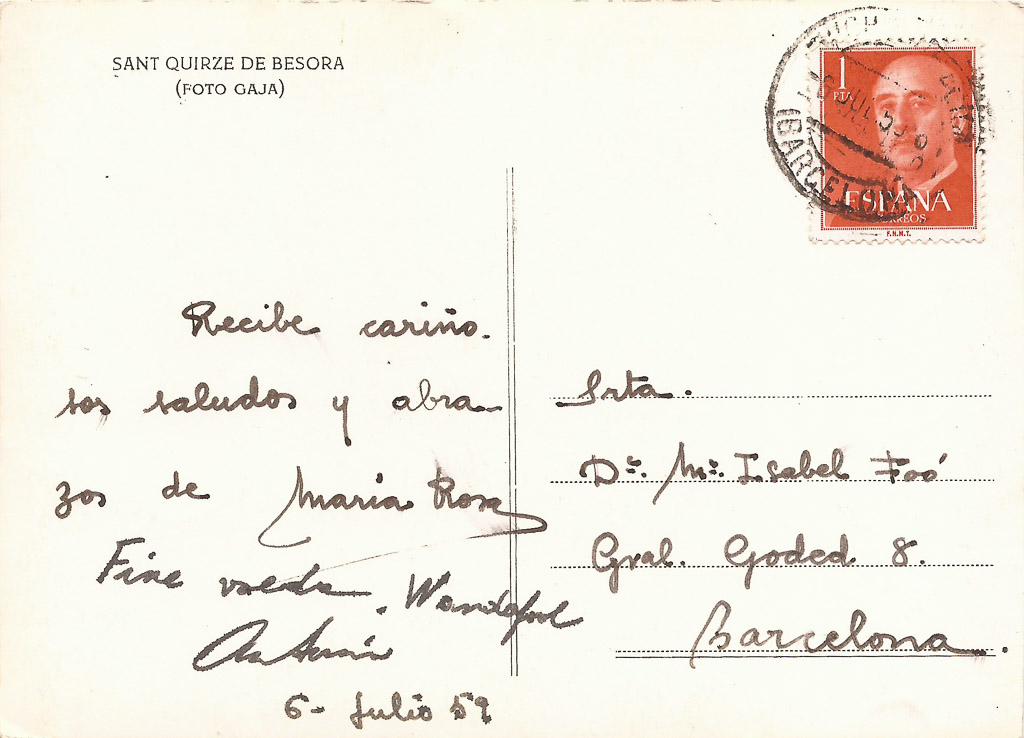 SANT QUIRZE DE BESORA
(FOTO GAJA)
1
PTA
JUL 59
(BARCELONA
ESPAÑA
CORREOS
F.N.M.T.
Recibe cariño.
sos saludos y abra-
zos de María Rosa
Fine Wondefool
Antonio
6- Julio 59
Srta.
Dª. Mª. Isabel Foó
Gral. Goded 8.
Barcelona.